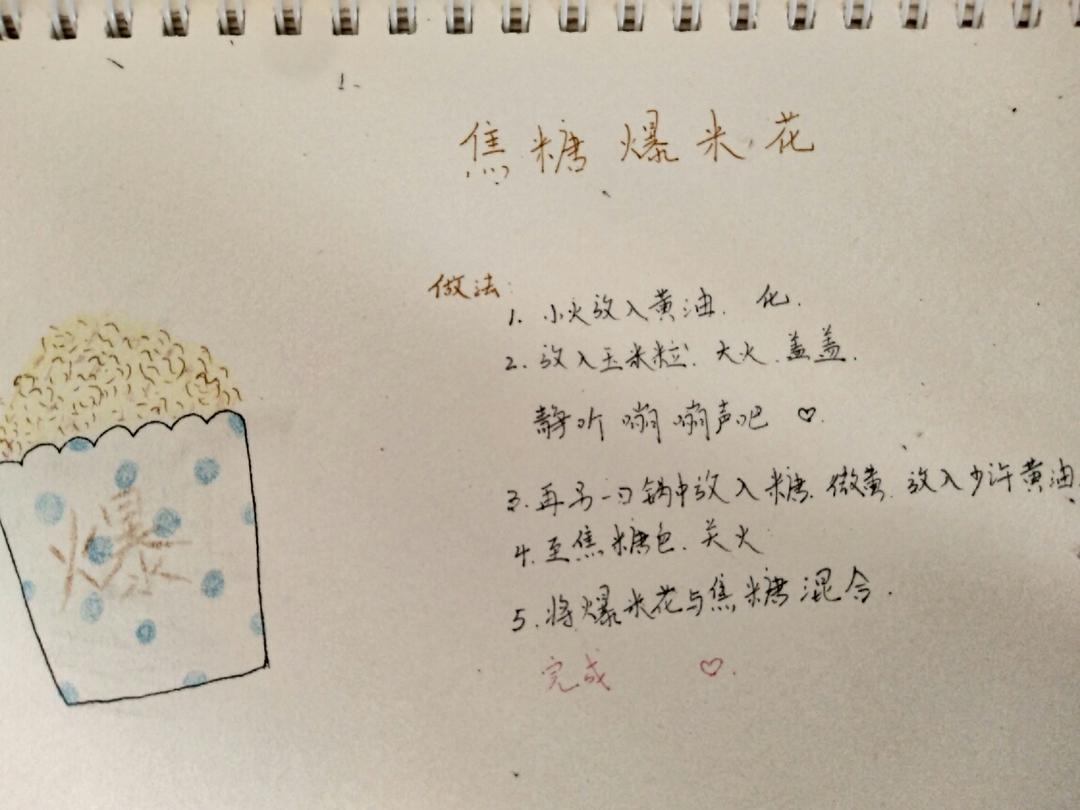 焦糖爆米花
做法:
1. 小火放入黄油. 化.
2. 放入玉米粒. 大火. 盖盖.
静听嘣嘣声吧 ♡.
3. 再另一口锅中放入糖. 微黄. 放入少许黄油.
4. 至焦糖色. 关火
5. 将爆米花与焦糖混合.
完成 ♡.
爆